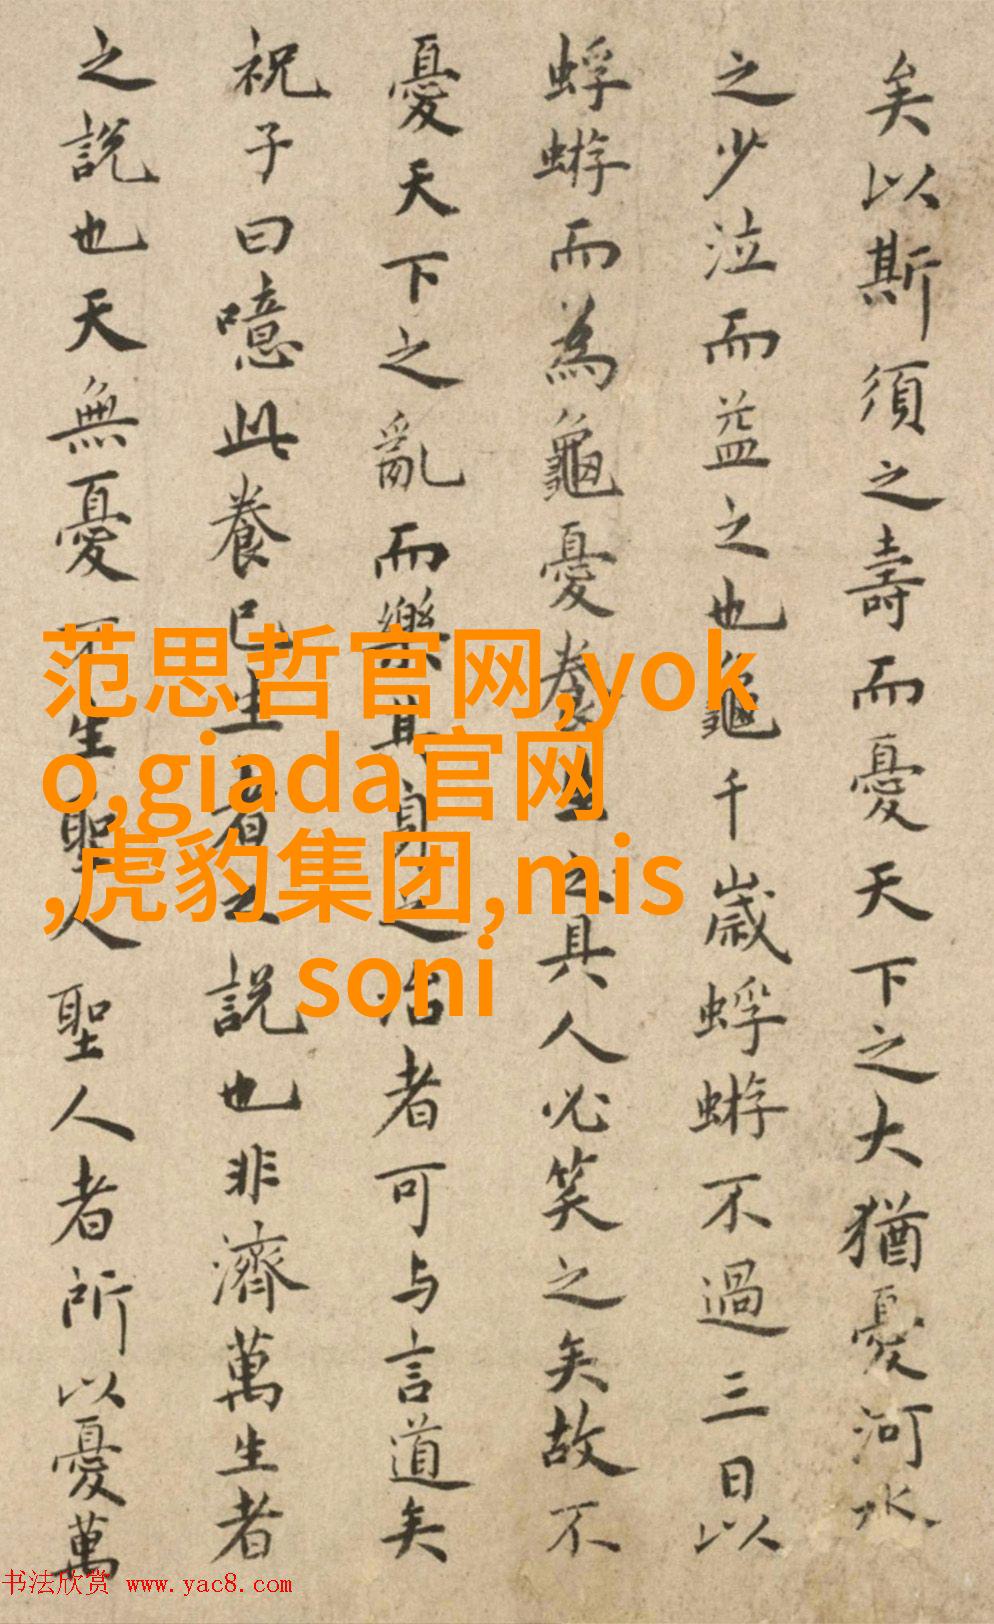 矣以斯須之壽而憂天下之大猶憂河水
之少泣而益之也龜千歲蜉蝣不過三日以
蜉蝣而為龜憂養生之具人必笑之矣故不
憂天下之亂而樂其身之治者可与言道矣
祝子曰噫此養己生者之說也非濟萬生者
之說也天無憂不生聖人聖人者所以憂萬
范思哲官网,yok
o,giada官网
,虎豹集团,mis
soni
书法欣赏 www.yac8.com